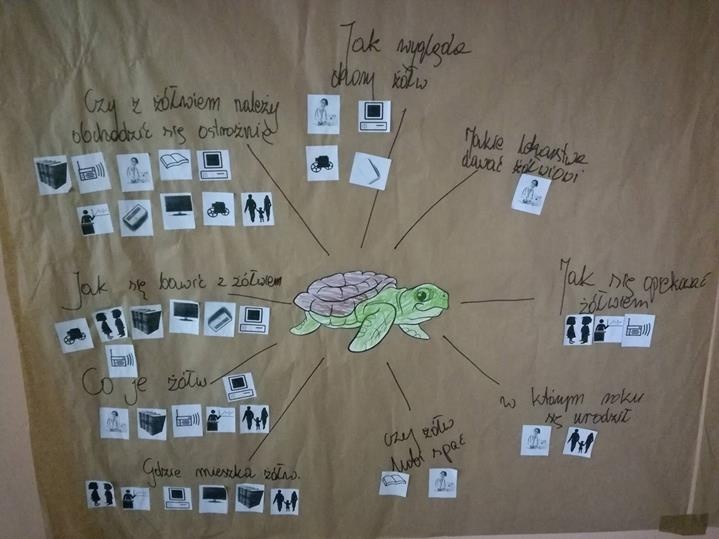 Jak wygląda
chory żółw
Czy z żółwiem należy
obchodzić się ostrożnie
Jakie lekarstwa
dawać żółwiowi
Jak się bawić z żółwiem
Jak się opiekować
żółwiem
Co je żółw
w którym roku
się urodził
czy żółw
lubi spać
Gdzie mieszka żółw.